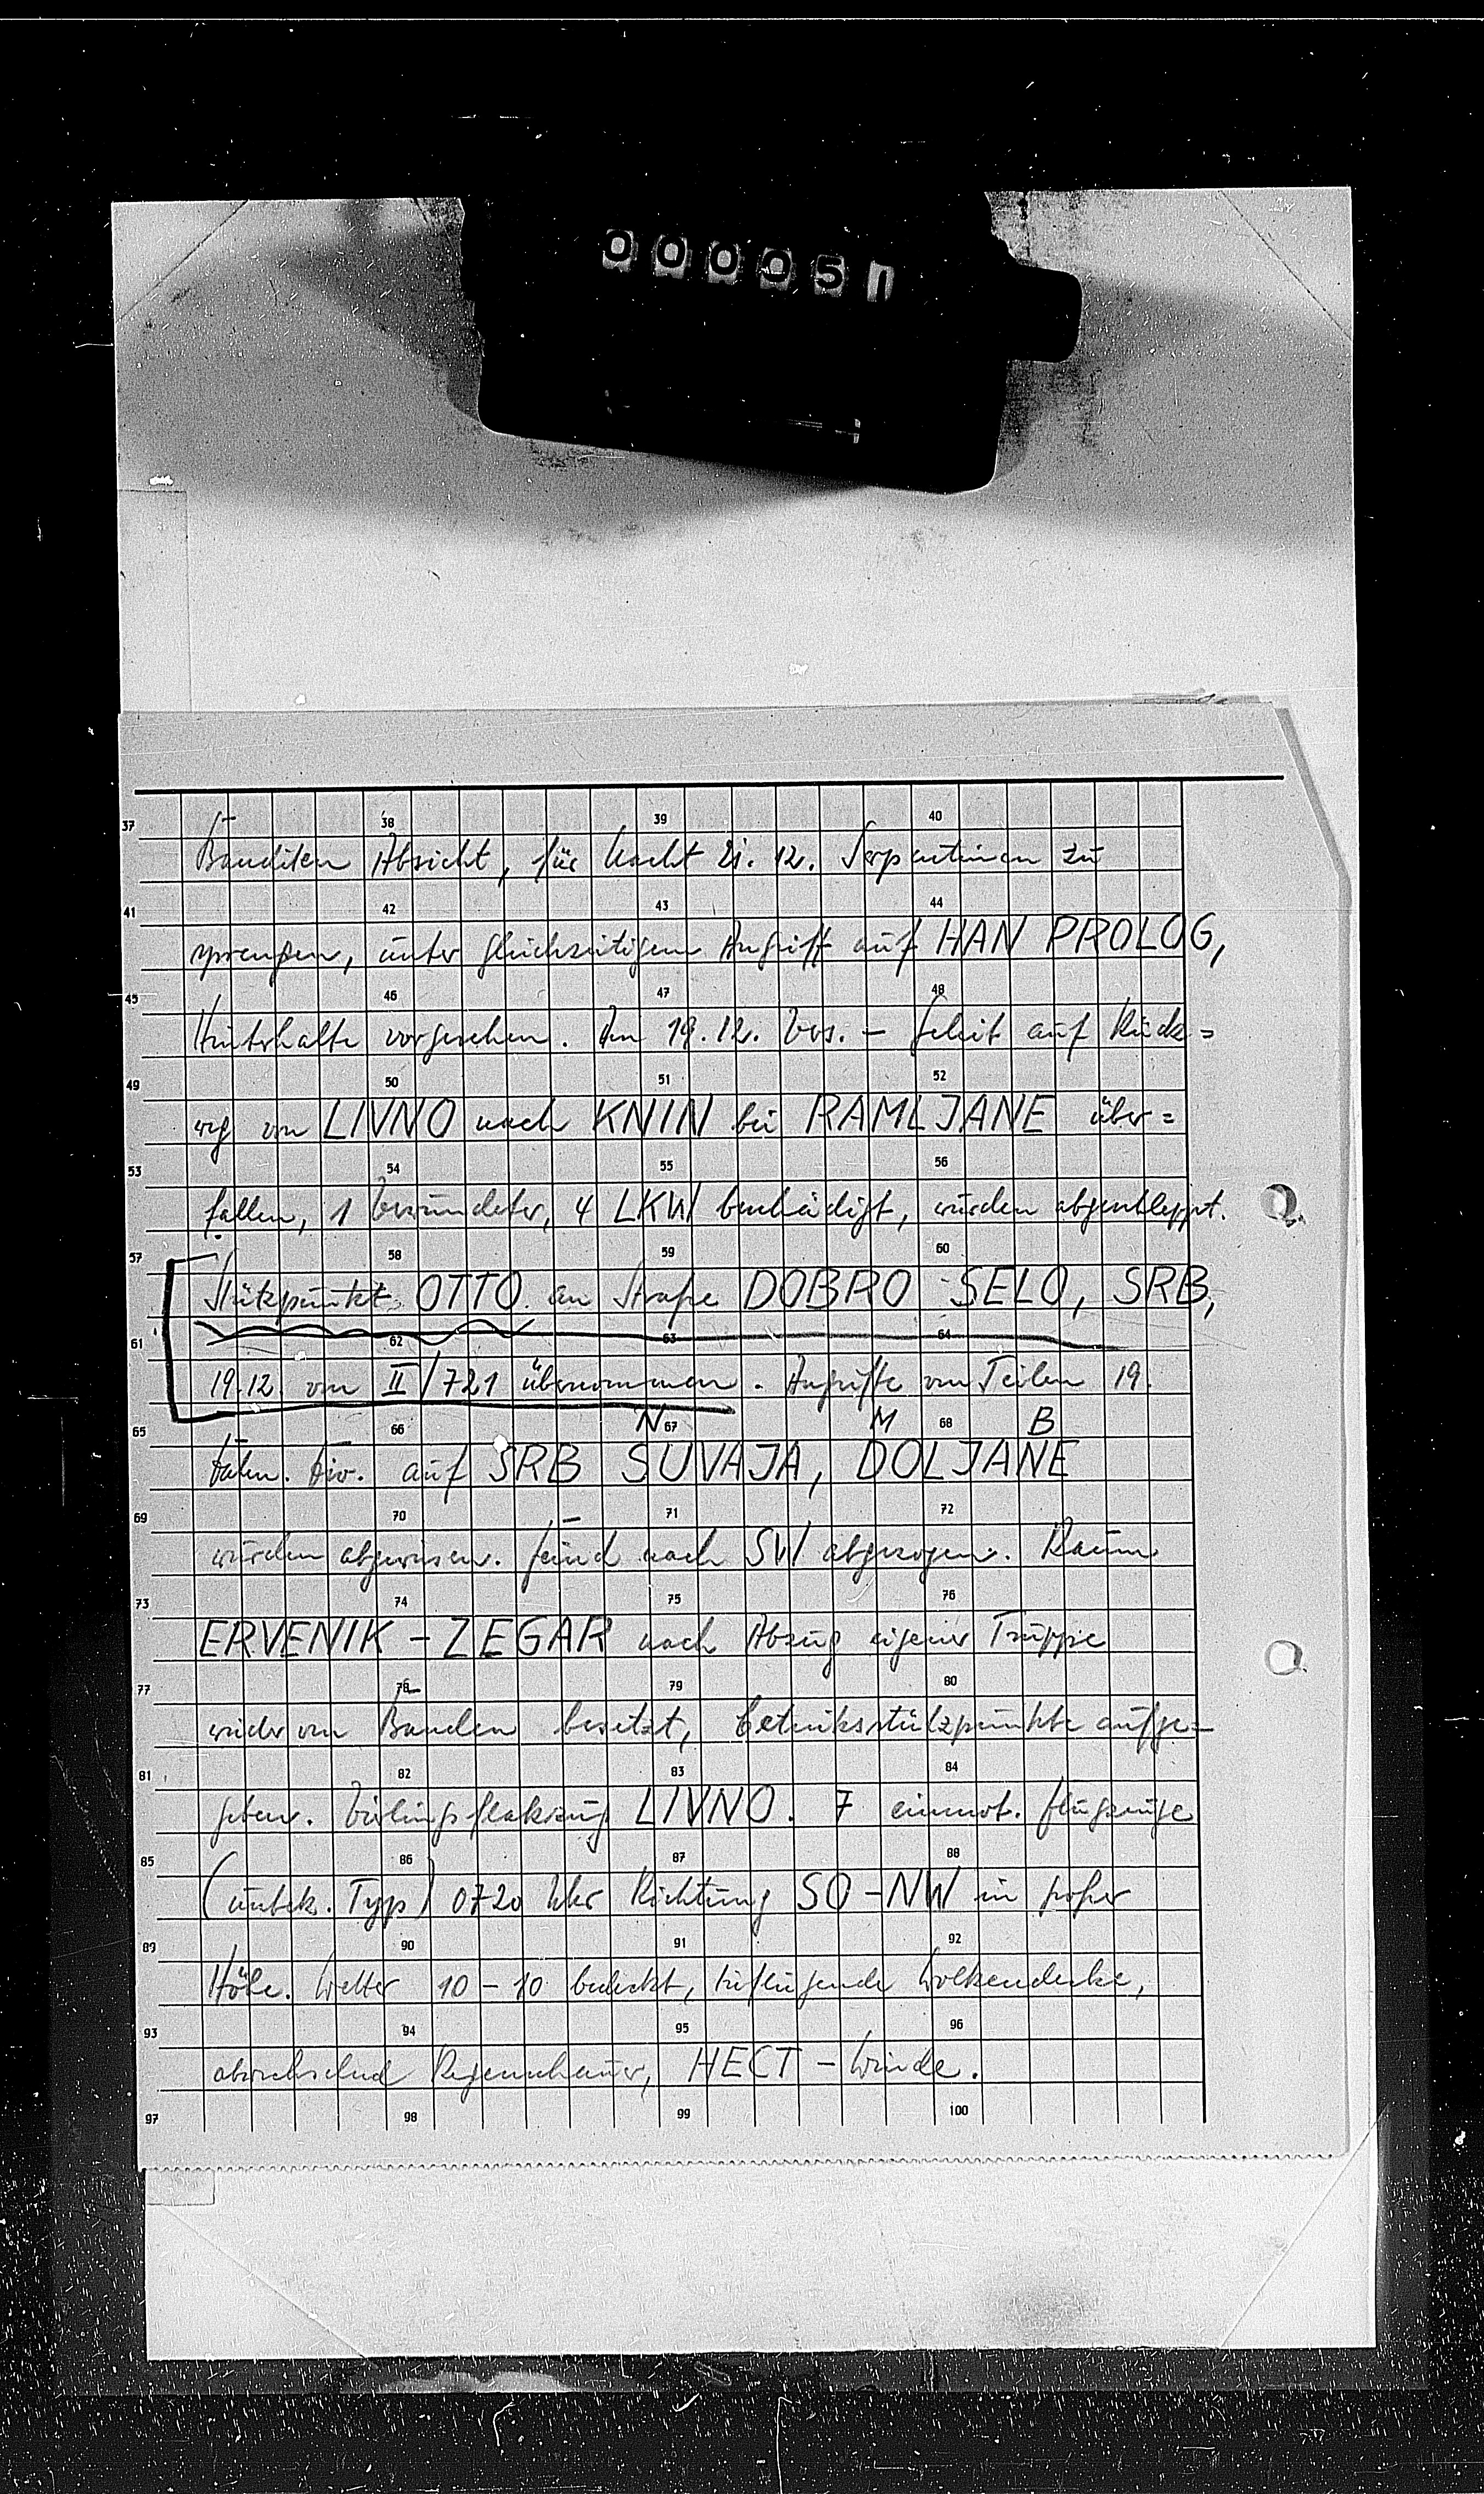 000051
37 38 39 40
Banditen Absicht, für Nacht 21. 12. Serpentinen zu
41 42 43 44
sprengen, unter gleichzeitigem Angriff auf HAN PROLOG,
45 46 47 48
Hinterhalte vorgesehen. Am 19.12. Vers. - Geleit auf Rück=
49 50 51 52
weg von LIVNO nach KNIN bei RAMLJANE über=
53 54 55 56
fallen, 1 Verwundeter, 4 LKW beschädigt, wurden abgeschleppt.
57 58 59 60
Stützpunkt OTTO an Straße DOBRO SELO, SRB,
61 62 63 64
19.12. von II/721 übernommen. Angriffe von Teilen 19.
N M B
65 66 67 68
Div. auf SRB SUVAJA, DOLJANE
69 70 71 72
wurden abgewiesen. Feind nach SW abgezogen. Raum
73 74 75 76
ERVENIK - ZEGAR nach Abzug eigener Truppe
77 78 79 80
wieder von Banden besetzt, Betriebsstützpunkte aufge=
81 82 83 84
geben. Vierlingsflakzug LIVNO. 7 einmot. Flugzeuge
85 86 87 88
(unbek. Typ) 0720 Uhr Richtung SO-NW in großer
89 90 91 92
Höhe. Wetter 10-10 bedeckt, tiefliegende Wolkendecke,
93 94 95 96
abwechselnd Regenschauer, HECT - Winde.
97 98 99 100